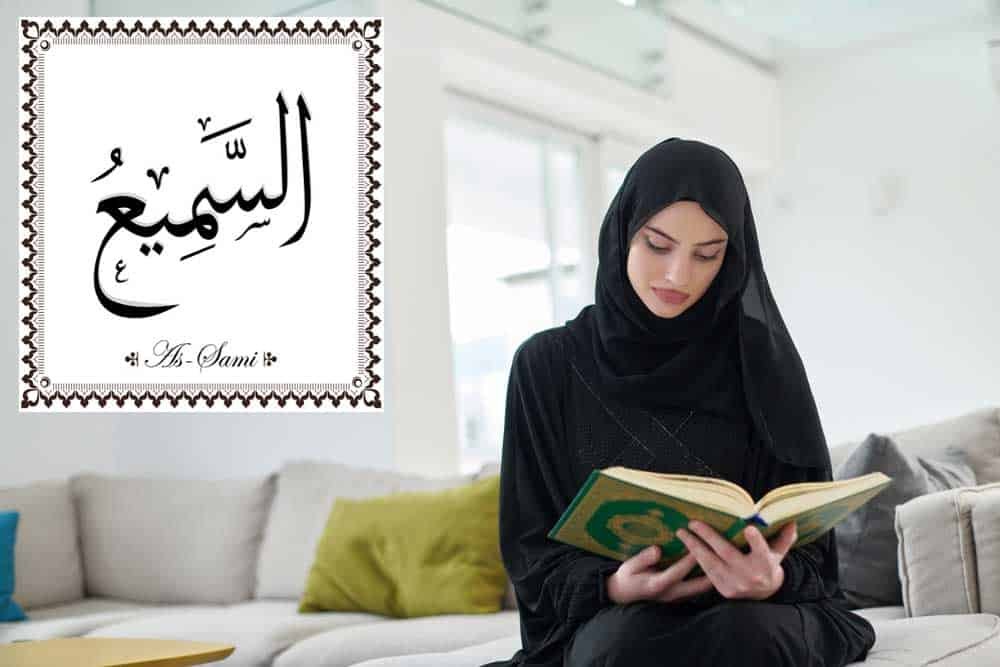 السَّمِيعُ
As-Sami